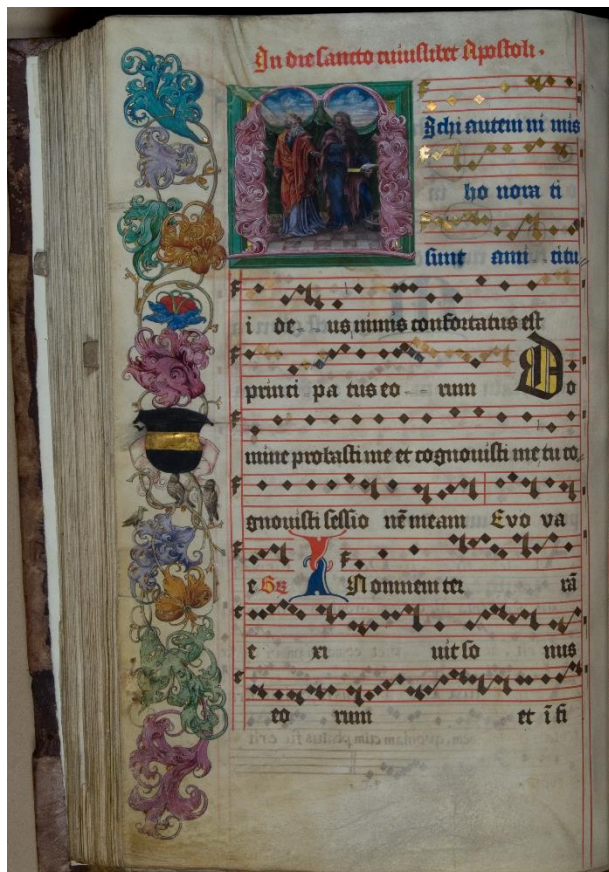 In die sancto cuiuslibet Apostoli.
Michi autem ni mis
ho nora ti
sunt ami citu
i de us nimis confortatus est
princi pa tus eo rum Do
mine probasti me et cognouisti me tu co
gnouisti sessio nē meam Evo va
e Gr̄ In omnem ter rā
e xi uit so nus
eo rum et ī fi